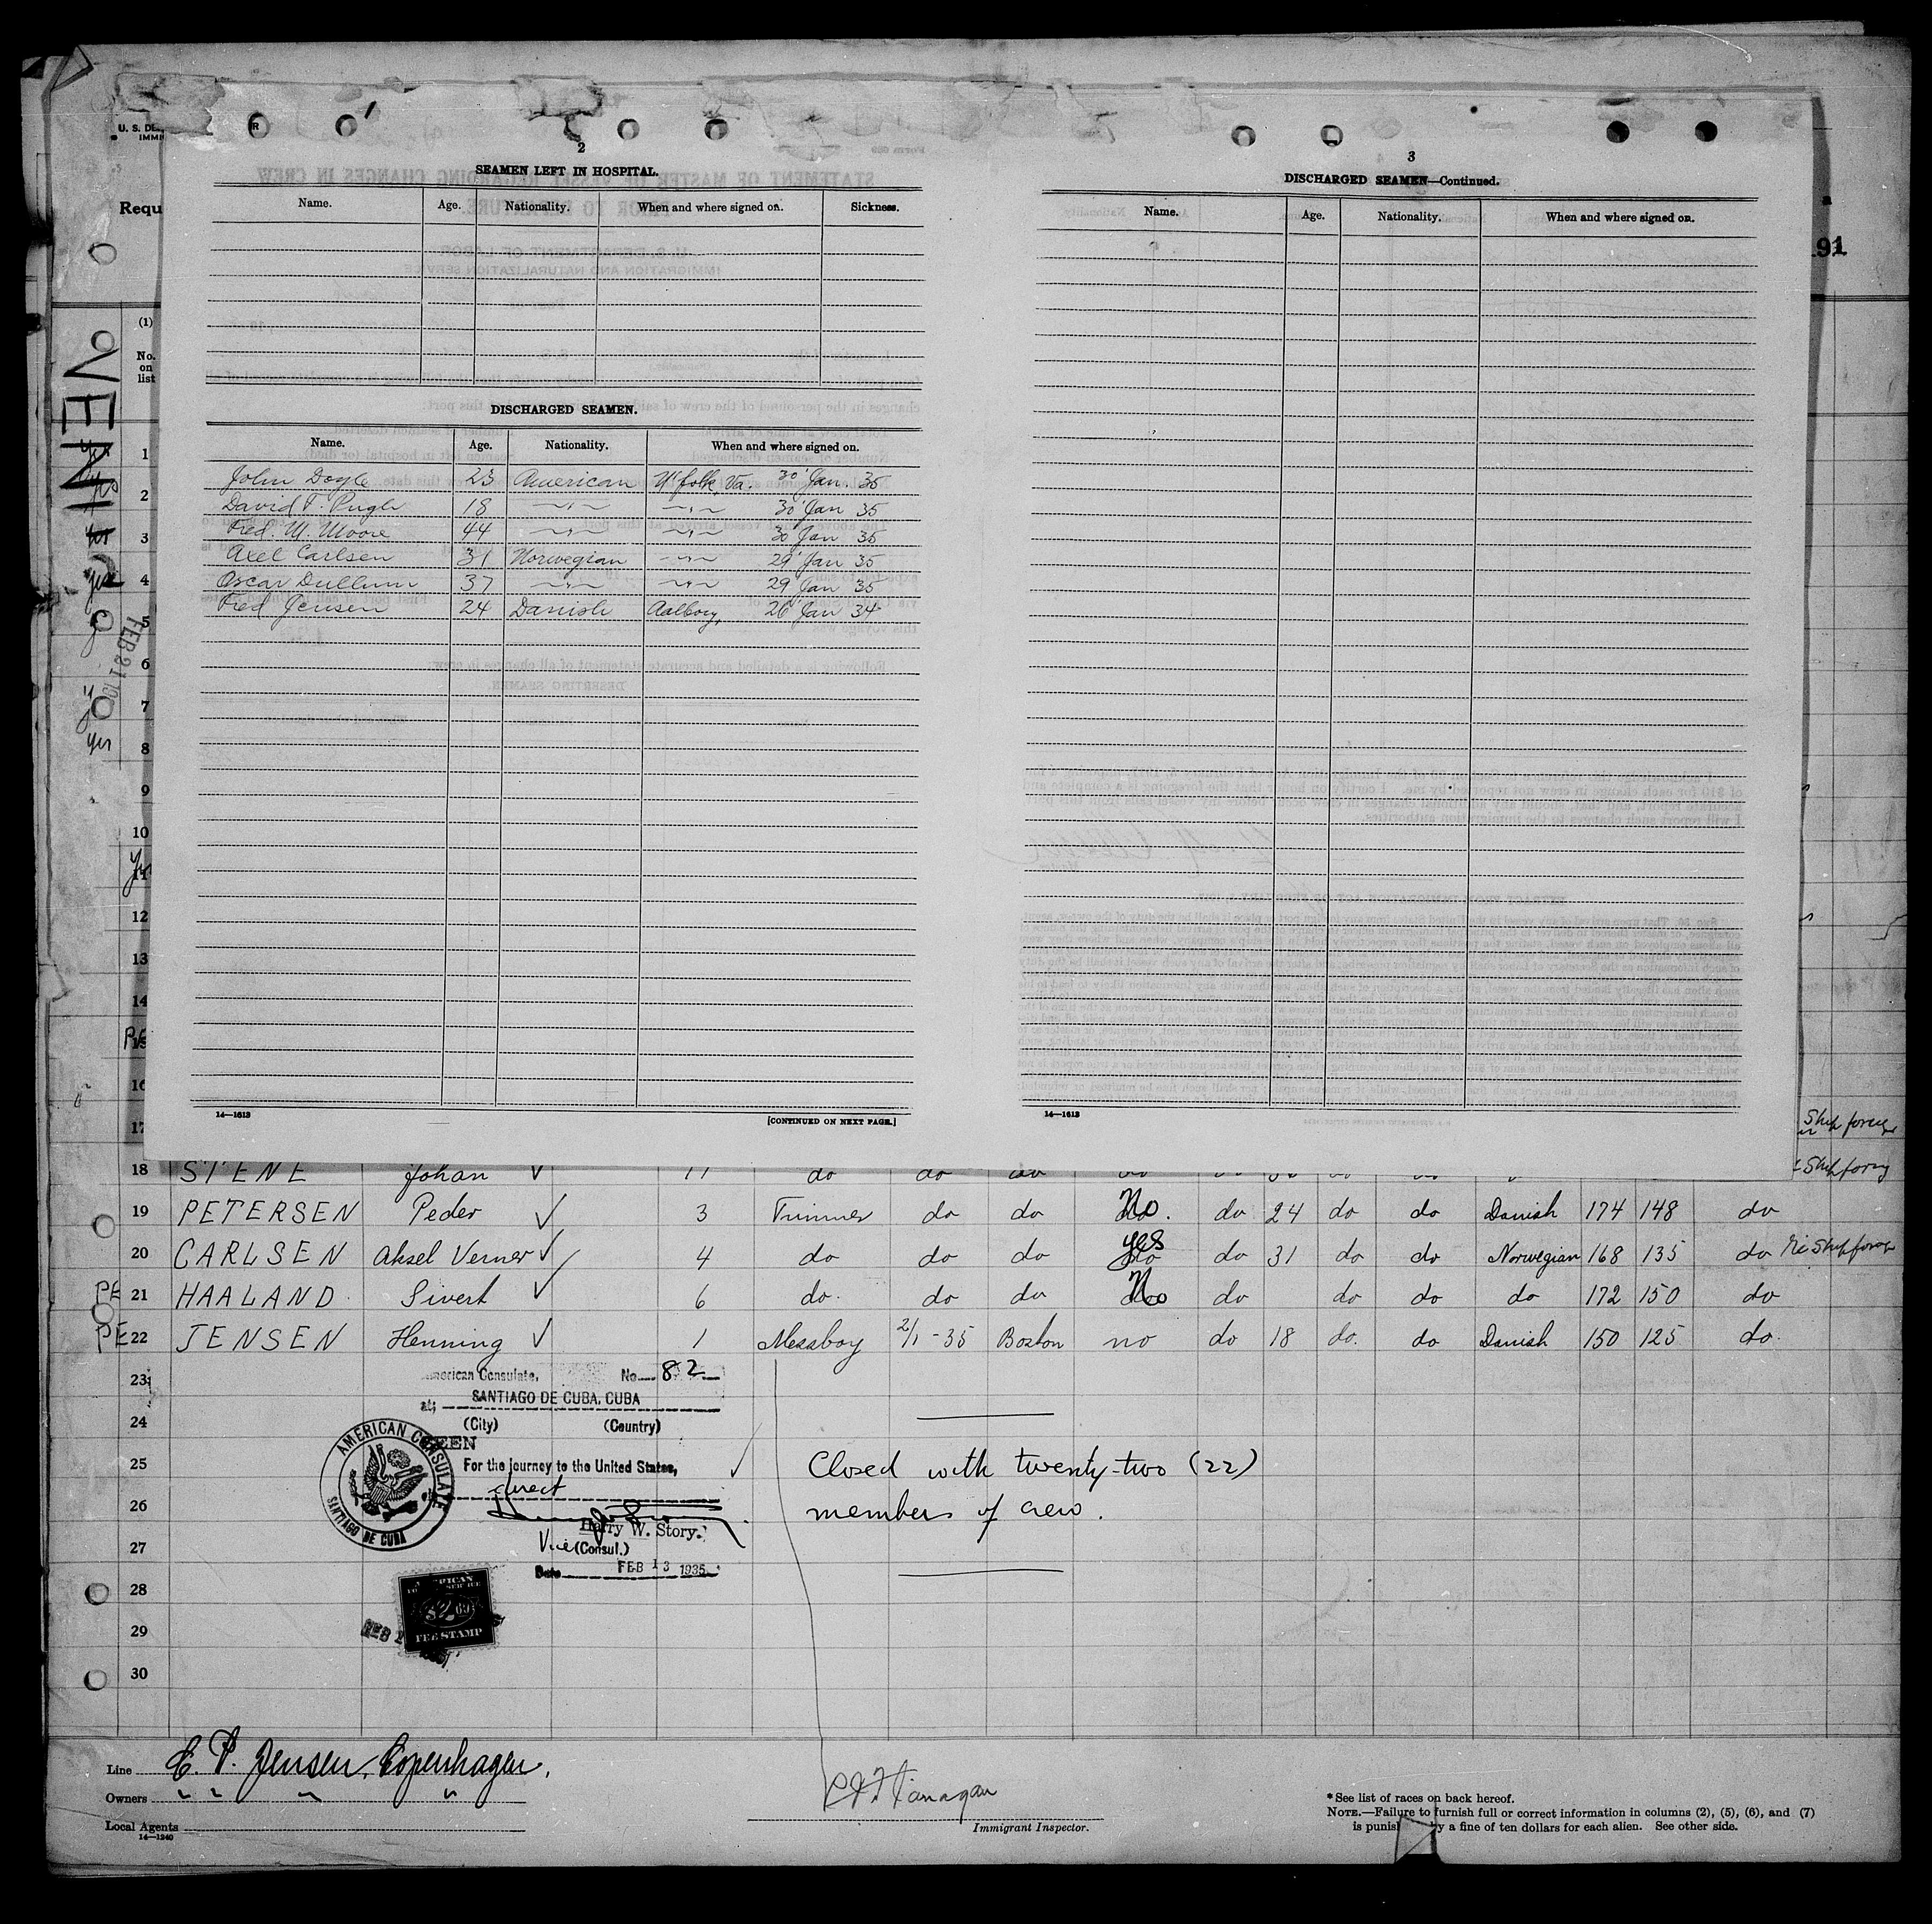 U. S. DE
IMMI
Requ
2
SEAMEN LEFT IN HOSPITAL.
Name. Age. Nationality. When and where signed on. Sickness.
DISCHARGED SEAMEN.
Name. Age. Nationality. When and where signed on.
John Doyle 23 American N'folk, Va. 30' Jan. 35
David T. Pugh 18 —"— —"— 30' Jan 35
Fred. M. Moore 44 —"— —"— 30 Jan 35
Axel Carlsen 31 Norwegian —"— 29' Jan 35
Oscar Dullum 37 —"— —"— 29 Jan 35
Fred Jensen 24 Danish Aalborg, 26' Jan 34
14—1613 [CONTINUED ON NEXT PAGE.]
3
DISCHARGED SEAMEN—Continued.
Name. Age. Nationality. When and where signed on.
14—1613
91
(1)
No.
on
list
1
2
3
4
5
6
7
8
9
10
11
12
13
14
15
16
17 Ship foreign
18 STENE Johan 11 do do do do Ship foreign
19 PETERSEN Peder 3 Trimmer do do No. do 24 do do Danish 174 148 do
20 CARLSEN Aksel Verner 4 do do do yes do 31 do do Norwegian 168 135 do Re Ship foreign
PE 21 HAALAND Sivert 6 do do do No do do do do 172 150 do
PE 22 JENSEN Henning 1 Messboy 2/1-35 Boston no do 18 do. do Danish 150 125 do.
23
24
25
26
27
28
29
30
American Consulate, No. 82
at; SANTIAGO DE CUBA, CUBA
(City) (Country)
SEEN
For the journey to the United States,
direct
Harry W. Story.
Vice (Consul.)
Date FEB 13 1935
AMERICAN CONSULATE
SANTIAGO DE CUBA
AMERICAN
FOREIGN SERVICE
$2.00
FEE STAMP
FEB 1
Closed with twenty-two (22)
members of crew.
Line E. P. Jensen, Copenhagen.
Owners " " " "
Local Agents
14—1240
Flanagan
Immigrant Inspector.
* See list of races on back hereof.
NOTE.—Failure to furnish full or correct information in columns (2), (5), (6), and (7)
is punis y a fine of ten dollars for each alien. See other side.